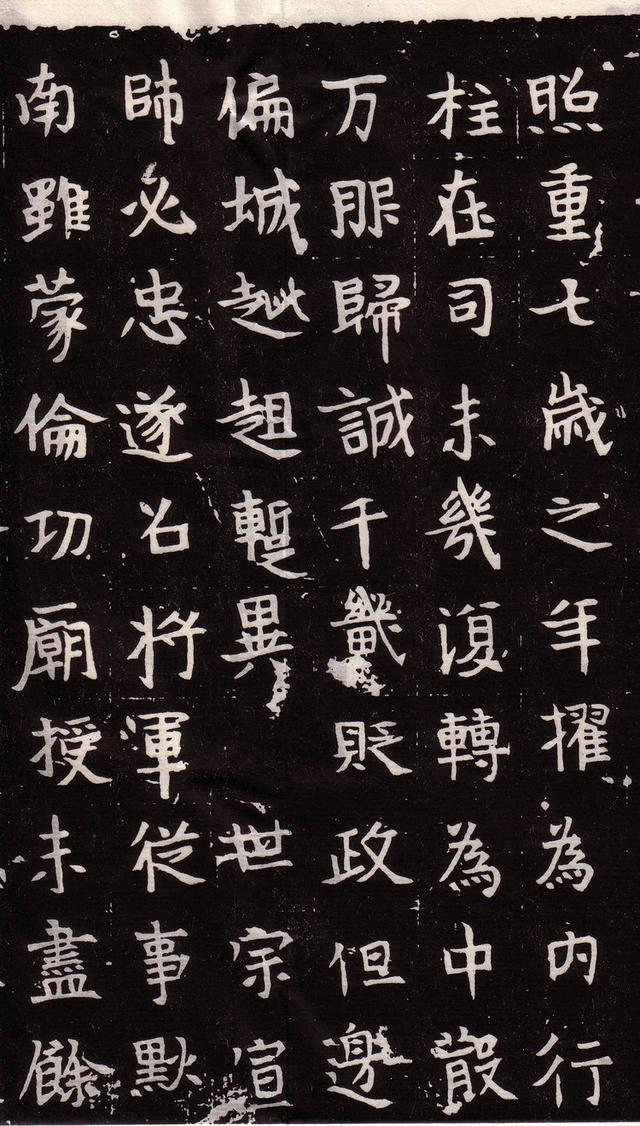 照重七歲之年擢為内行
柱在司未幾復轉為中散
万服歸誠千畿貶政但邊
偏城趑趄暫異世宗宣
師必忠遂召將軍從事默
南雖蒙倫功廟授未盡餘